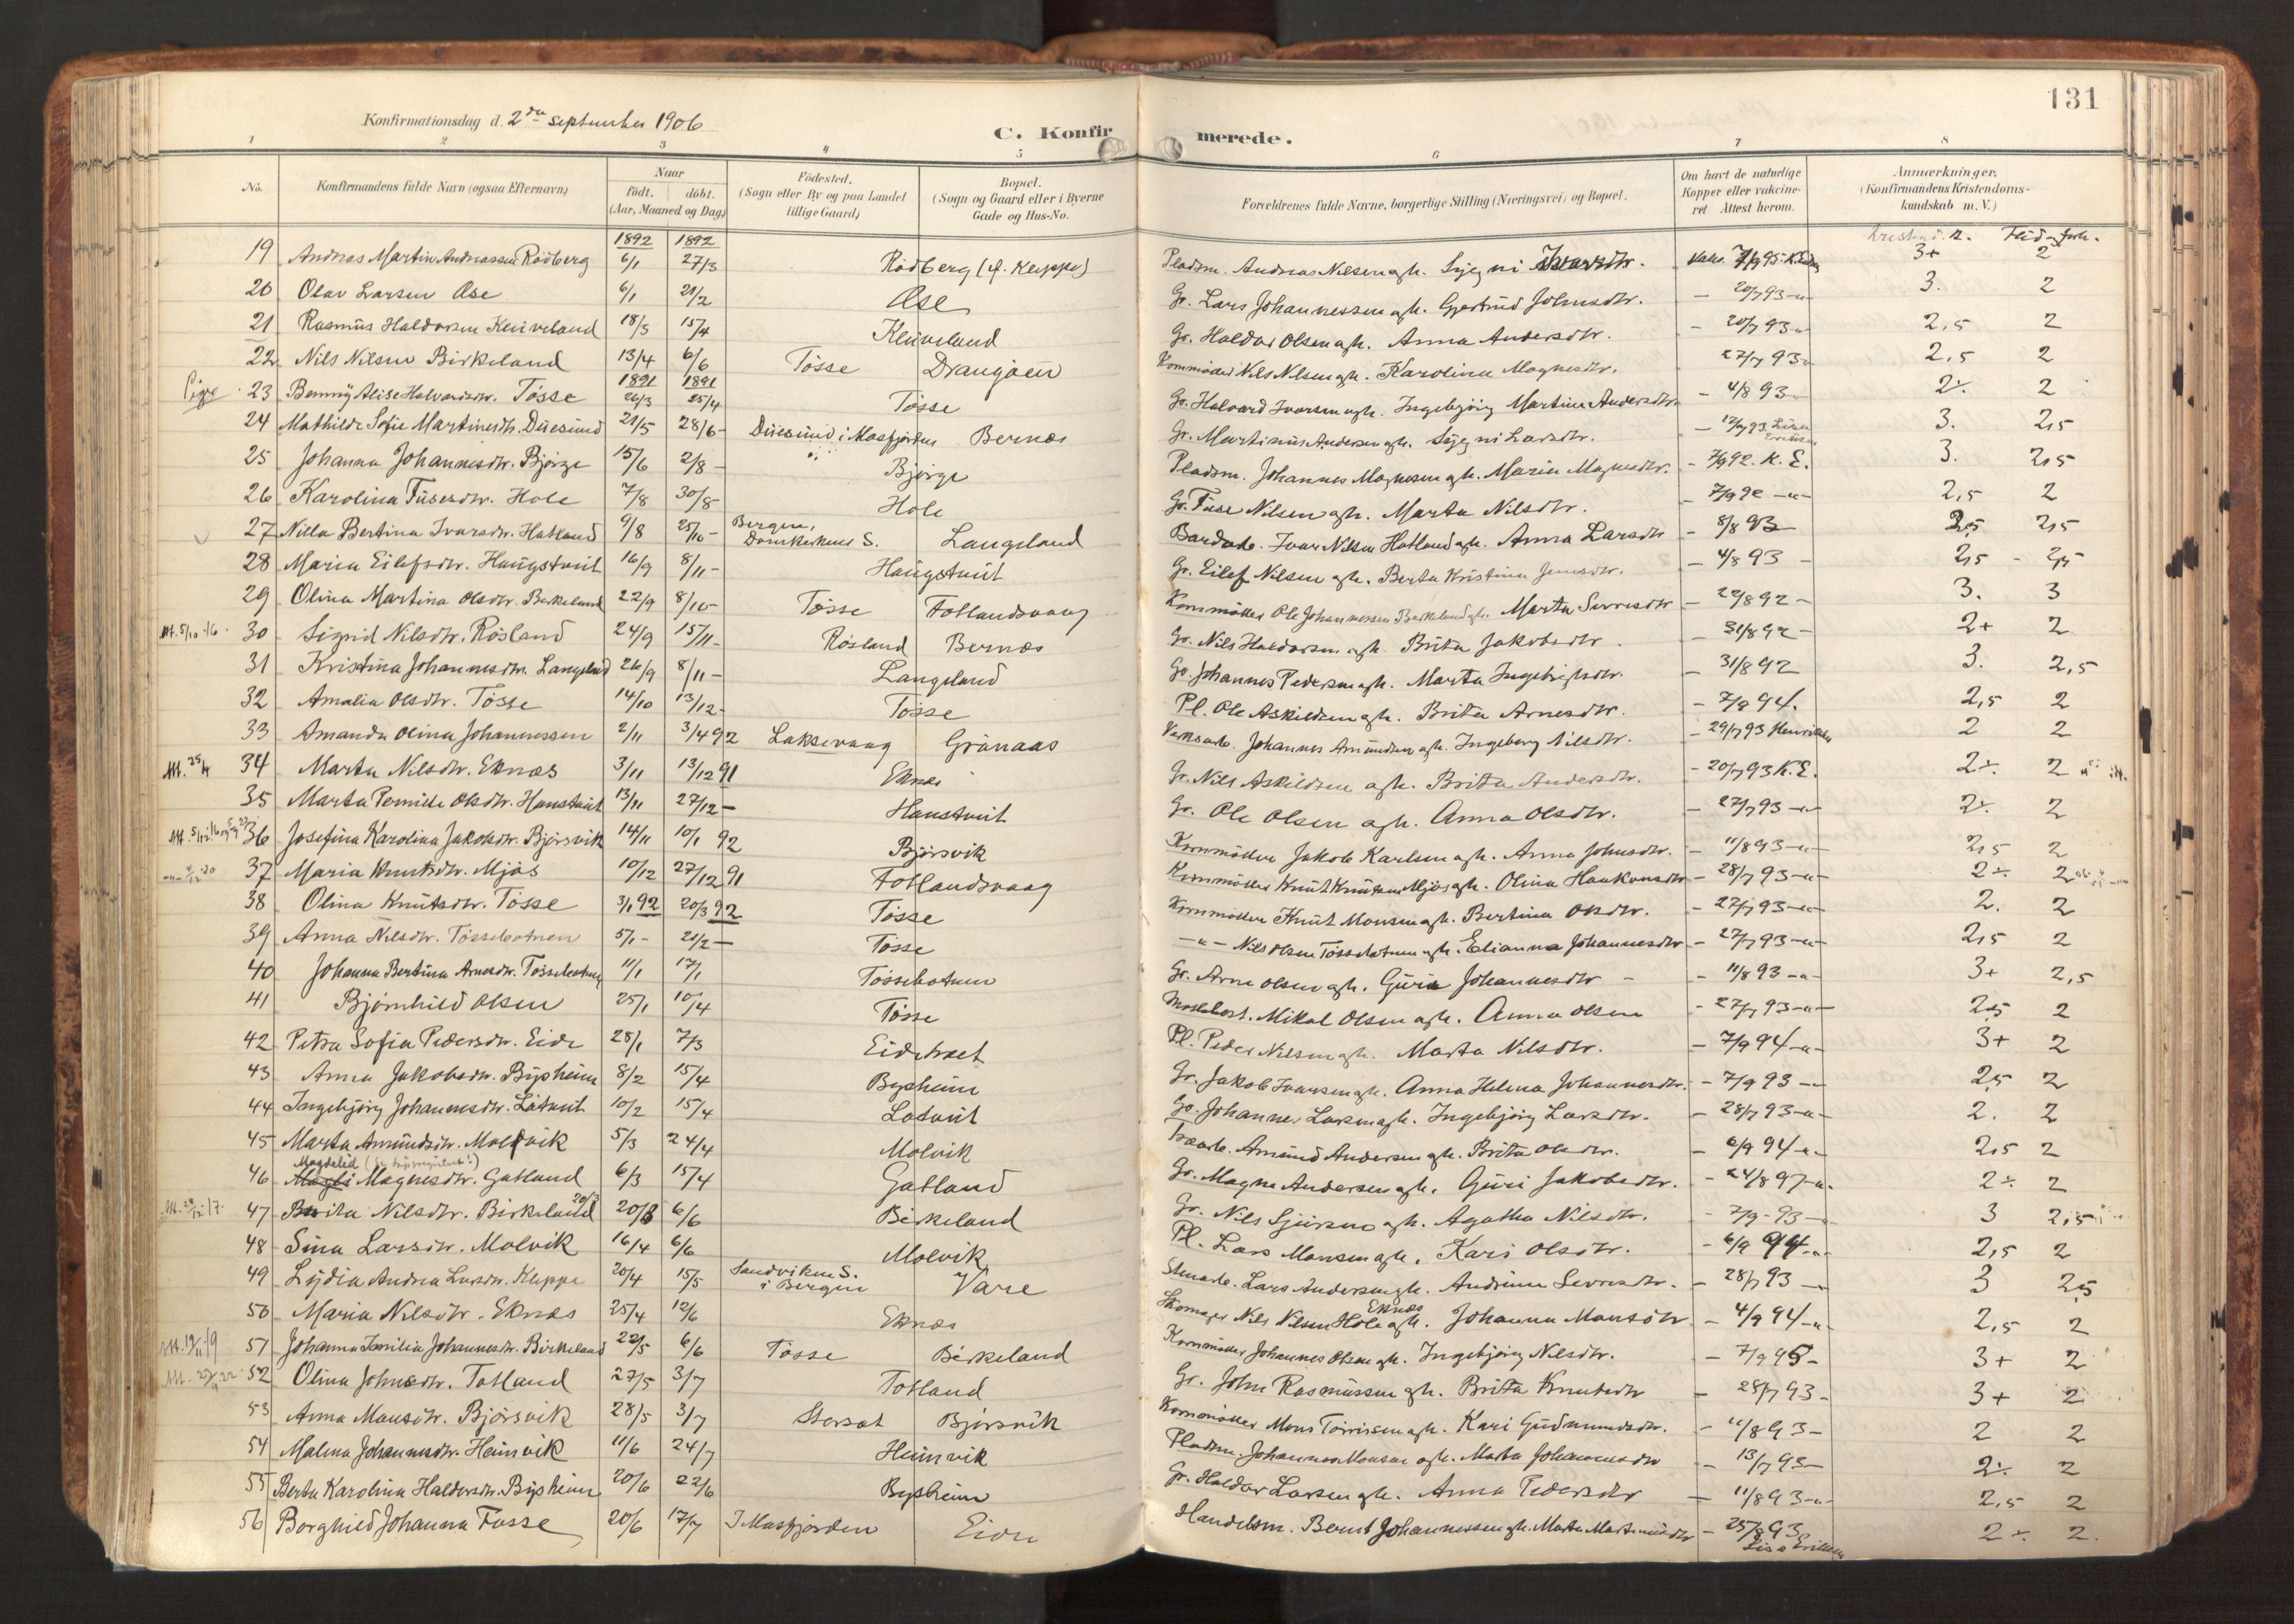 131
Konfirmationsdag d. 2den september 1906
C. Konfirmerede.
1 2 3 4 5 6 7 8
No. Konfirmandens fulde Navn (ogsaa Efternavn) Naar født. døbt. (Aar, Maaned og Dag) Fødested. (Sogn eller By og paa Landet tillige Gaard) Bopæl. (Sogn og Gaard eller i Byerne Gade og Hus-No. Forældrenes fulde Navne, borgerlige Stilling (Næringsvei) og Bopæl. Om havt de naturlige Kopper eller vakcineret. Attest herom. Anmærkninger. (Konfirmandens Kristendomskundskab m. V.)
1892 1892
19 Andreas Martin Andreassen Rödberg 6/1 27/3 Rödberg (u. Kleppe) Pladsm. Andreas Nilsen agh. Ivarsdtr. 7/9 95 3+ 2
20 Olav Larsen Ase 6/1 21/2 Ase Gr. Lars Johannessen agh. Gjertrud Johnsdtr. - 20/7 93 -"- 3. 2
21 Rasmus Haldorsen Kleiveland 18/3 15/4 Kleiveland Gr. Haldor Olsen agh. Anna Andersdtr. - 20/7 93 -"- 2,5 2
22 Nils Nilsen Birkeland 13/4 6/6 Tösse Drangöen Kornmöller Nils Nilsen agh. Karolina Magnesdtr. 27/7 93 2,5 2
Piger 1891 1891
23 Benny Alise Halvardsdtr. Tösse 26/3 25/4 Tösse Gr. Halvard Ivarsen agh. Ingebjörg Martine Andersdtr. - 4/8 93 2÷ 2
24 Mathilde Sofie Martinesdtr. Duesund 21/5 28/6 - Duesund i Masfjorden Bernæs Gr. Martinus Andersen agh. Larsdtr. 93 3. 2,5
25 Johanna Johannesdtr. Bjørge 15/6 2/8 - Bjørge Pladsm. Johannes Magnesen agh. Maria Magnesdtr. - 7/9 92. K. E. 3. 2,5
26 Karolina Tusesdtr. Hole 7/8 30/8 Hole Gr. Tuse Nilsen agh. Marta Nilsdtr. - 7/9 92 -"- 2,5 2
27 Nilla Bertina Ivarsdtr. Hatland 9/8 25/10 - Bergen, Domkirkens S. Langeland Ivar Nilsen Hatland agh. Anna Larsdtr - 8/8 93 2,5 2,5
28 Maria Eilefsdtr. Haugstveit 16/9 8/11 - Haugstveit Gr. Eilef Nilsen agh. Berta Kristina Jensdtr. - 4/8 93 - 2,5 - 2,5
29 Olina Martina Olsdtr. Birkeland 22/9 8/10 - Tösse Fotlandsvaag Kornmöller Ole Johannessen Birkeland agh. Marta Sverresdtr - 22/8 92 - 3. 3
Att. 5/10 -16. 30 Sigrid Nilsdtr. Rösland 24/9 15/11 - Rösland Bernæs Gr. Nils Haldorsen agh. Brita Jakobsdtr - 31/8 92 - 2+ 2
31 Kristina Johannesdtr. Langeland 26/9 8/11 - Langeland Gr. Johannes Pedersen agh. Marta Ingebrigtsdtr. - 31/8 92 3. 2,5
32 Amalia Olsdtr. Tösse 14/10 13/12 - Tösse Pl. Ole Askildsen agh. Brita Arnesdtr. - 7/9 94. 2,5 2
33 Amanda Olina Johannessen 2/11 3/4 92 Laksevaag Grönaas Johannes Amundsen agh. Ingeborg Nilsdtr. - 29/7 93 Henriksen 2 2
34 Marta Nilsdtr. Eknæs 3/11 13/12 91 Eknæs Gr. Nils Askildsen agh. Brita Andersdtr. - 20/7 93 K. E. 2÷ 2
35 Marta Pernille Olsdtr. Hanstveit 13/11 27/12 - Hanstveit Gr. Ole Olsen agh. Anna Olsdtr. - 27/7 93 -"- 2÷ 2
36 Josefina Karolina Jakobsdtr. Björsvik 14/11 10/1 92 Björsvik Kornmöller Jakob Karlsen agh. Anna Johnsdtr. - 11/8 93 -"- 2,5 2
37 Maria Knutsdtr. Mjös 10/12 27/12 91 Fotlandsvaag Kornmöller Knut Knutsen Mjös agh. Olina Haakonsdtr - 28/7 93 -"- 2÷ 2
38 Olina Knutsdtr. Tösse 3/1 92 20/3 92 Tösse Kornmöller Knut Monsen agh. Bertina Olsdtr. - 27/7 93 -"- 2. 2
39 Anna Nilsdtr. Tössebotnen 5/1 - 21/2 - Tösse -"- Nils Olsen Tössebotnen agh. Elianna Johannesdtr - 27/7 93 -"- 2,5 2
40 Johanna Bertina Arnesdtr. Tössebotnen 11/1 17/1 Tössebotnen Gr. Arne Olsen agh. Guri Johannesdtr - - 11/8 93 -"- 3+ 2,5
41 Björnhild Olsen 25/1 10/4 Tösse Mikal Olsen agh. Anna Olsen - 27/7 93 -"- 2,5 2
42 Petra Sofia Pedersdtr. Eide 28/1 7/3 Eidetræet Pl. Peder Nilsen agh. Marta Nilsdtr. - 7/9 94 -"- 3+ 2
43 Anna Jakobsdtr. Bysheim 8/2 15/4 Bysheim Gr. Jakob Ivarsen agh. Anna Helena Johannesdtr. - 7/9 93 -"- 2,5 2
44 Ingebjörg Johannesdtr. Lötveit 10/2 15/4 Lötveit Gr. Johannes Larsen agh. Ingebjörg Larsdtr. - 28/7 93 -"- 2. 2
45 Marta Amundsdtr. Molvik 5/3 24/4 Molvik Amund Andersen agh. Brita Olsdtr. - 6/9 94 -"- 2,5 2
Magdelid
46 Magnesdtr. Gatland 6/3 15/4 Gatland Gr. Magne Andersen agh. Guri Jakobsdtr. - 24/8 97 -"- 2÷ 2
47 Brita Nilsdtr. Birkeland 20/3 6/6 Birkeland Gr. Nils Sjursen agh. Agatha Nilsdtr. - 7/9 - 93 - 3 2,5
48 Sina Larsdtr. Molvik 16/4 6/6 Molvik Pl. Lars Monsen agh. Kari Olsdtr. - 6/9 94 -"- 2,5 2
49 Lydia Andrea Larsdtr. Kleppe 20/4 15/5 Sandvikens S. i Bergen Vare Stenarb. Lars Andersen agh. Andrine Severinsdtr. - 28/7 93 -"- 3 2,5
50 Maria Nilsdtr. Eknæs 25/4 12/6 Eknæs Skomager Nils Nilsen Hole Eknæs agh. Johanna Monsdtr - 4/9 94 -"- 2,5 2
51 Johanna Emilia Johannesdtr. Birkeland 22/5 6/6 Tösse Birkeland Kornmöller Johannes Olsen agh. Ingebjörg Nilsdtr. - 7/9 95 - 3+ 2
52 Olina Johnsdtr. Totland 27/5 3/7 Totland Gr. John Rasmussen agh. Brita Knutsdtr - 28/7 93 - 3+ 2
53 Anna Monsdtr. Björsvik 28/5 3/7 Storset Björsvik Kornmöller Mons Torrisen agh. Kari Gudmundsdtr. - 11/8 93 - 2 2
54 Malena Johannesdtr. Heimvik 11/6 24/7 Heimvik Pladsm. Johannes Monsen agh. Marta Johannesdtr - 13/7 95 - 2÷ 2
55 Berta Karolina Haldorsdtr. Bysheim 20/6 22/6 Bysheim Gr. Haldor Larsen agh. Anna Pedersdtr - 11/8 93 -"- 2,5 2
56 Borghild Johanna Fosse 20/6 17/7 I Masfjorden Eide Handelsm. Bernt Johannessen agh. Marta Martinusdtr - 25/8 93 Lise Eriksen 2÷ 2.